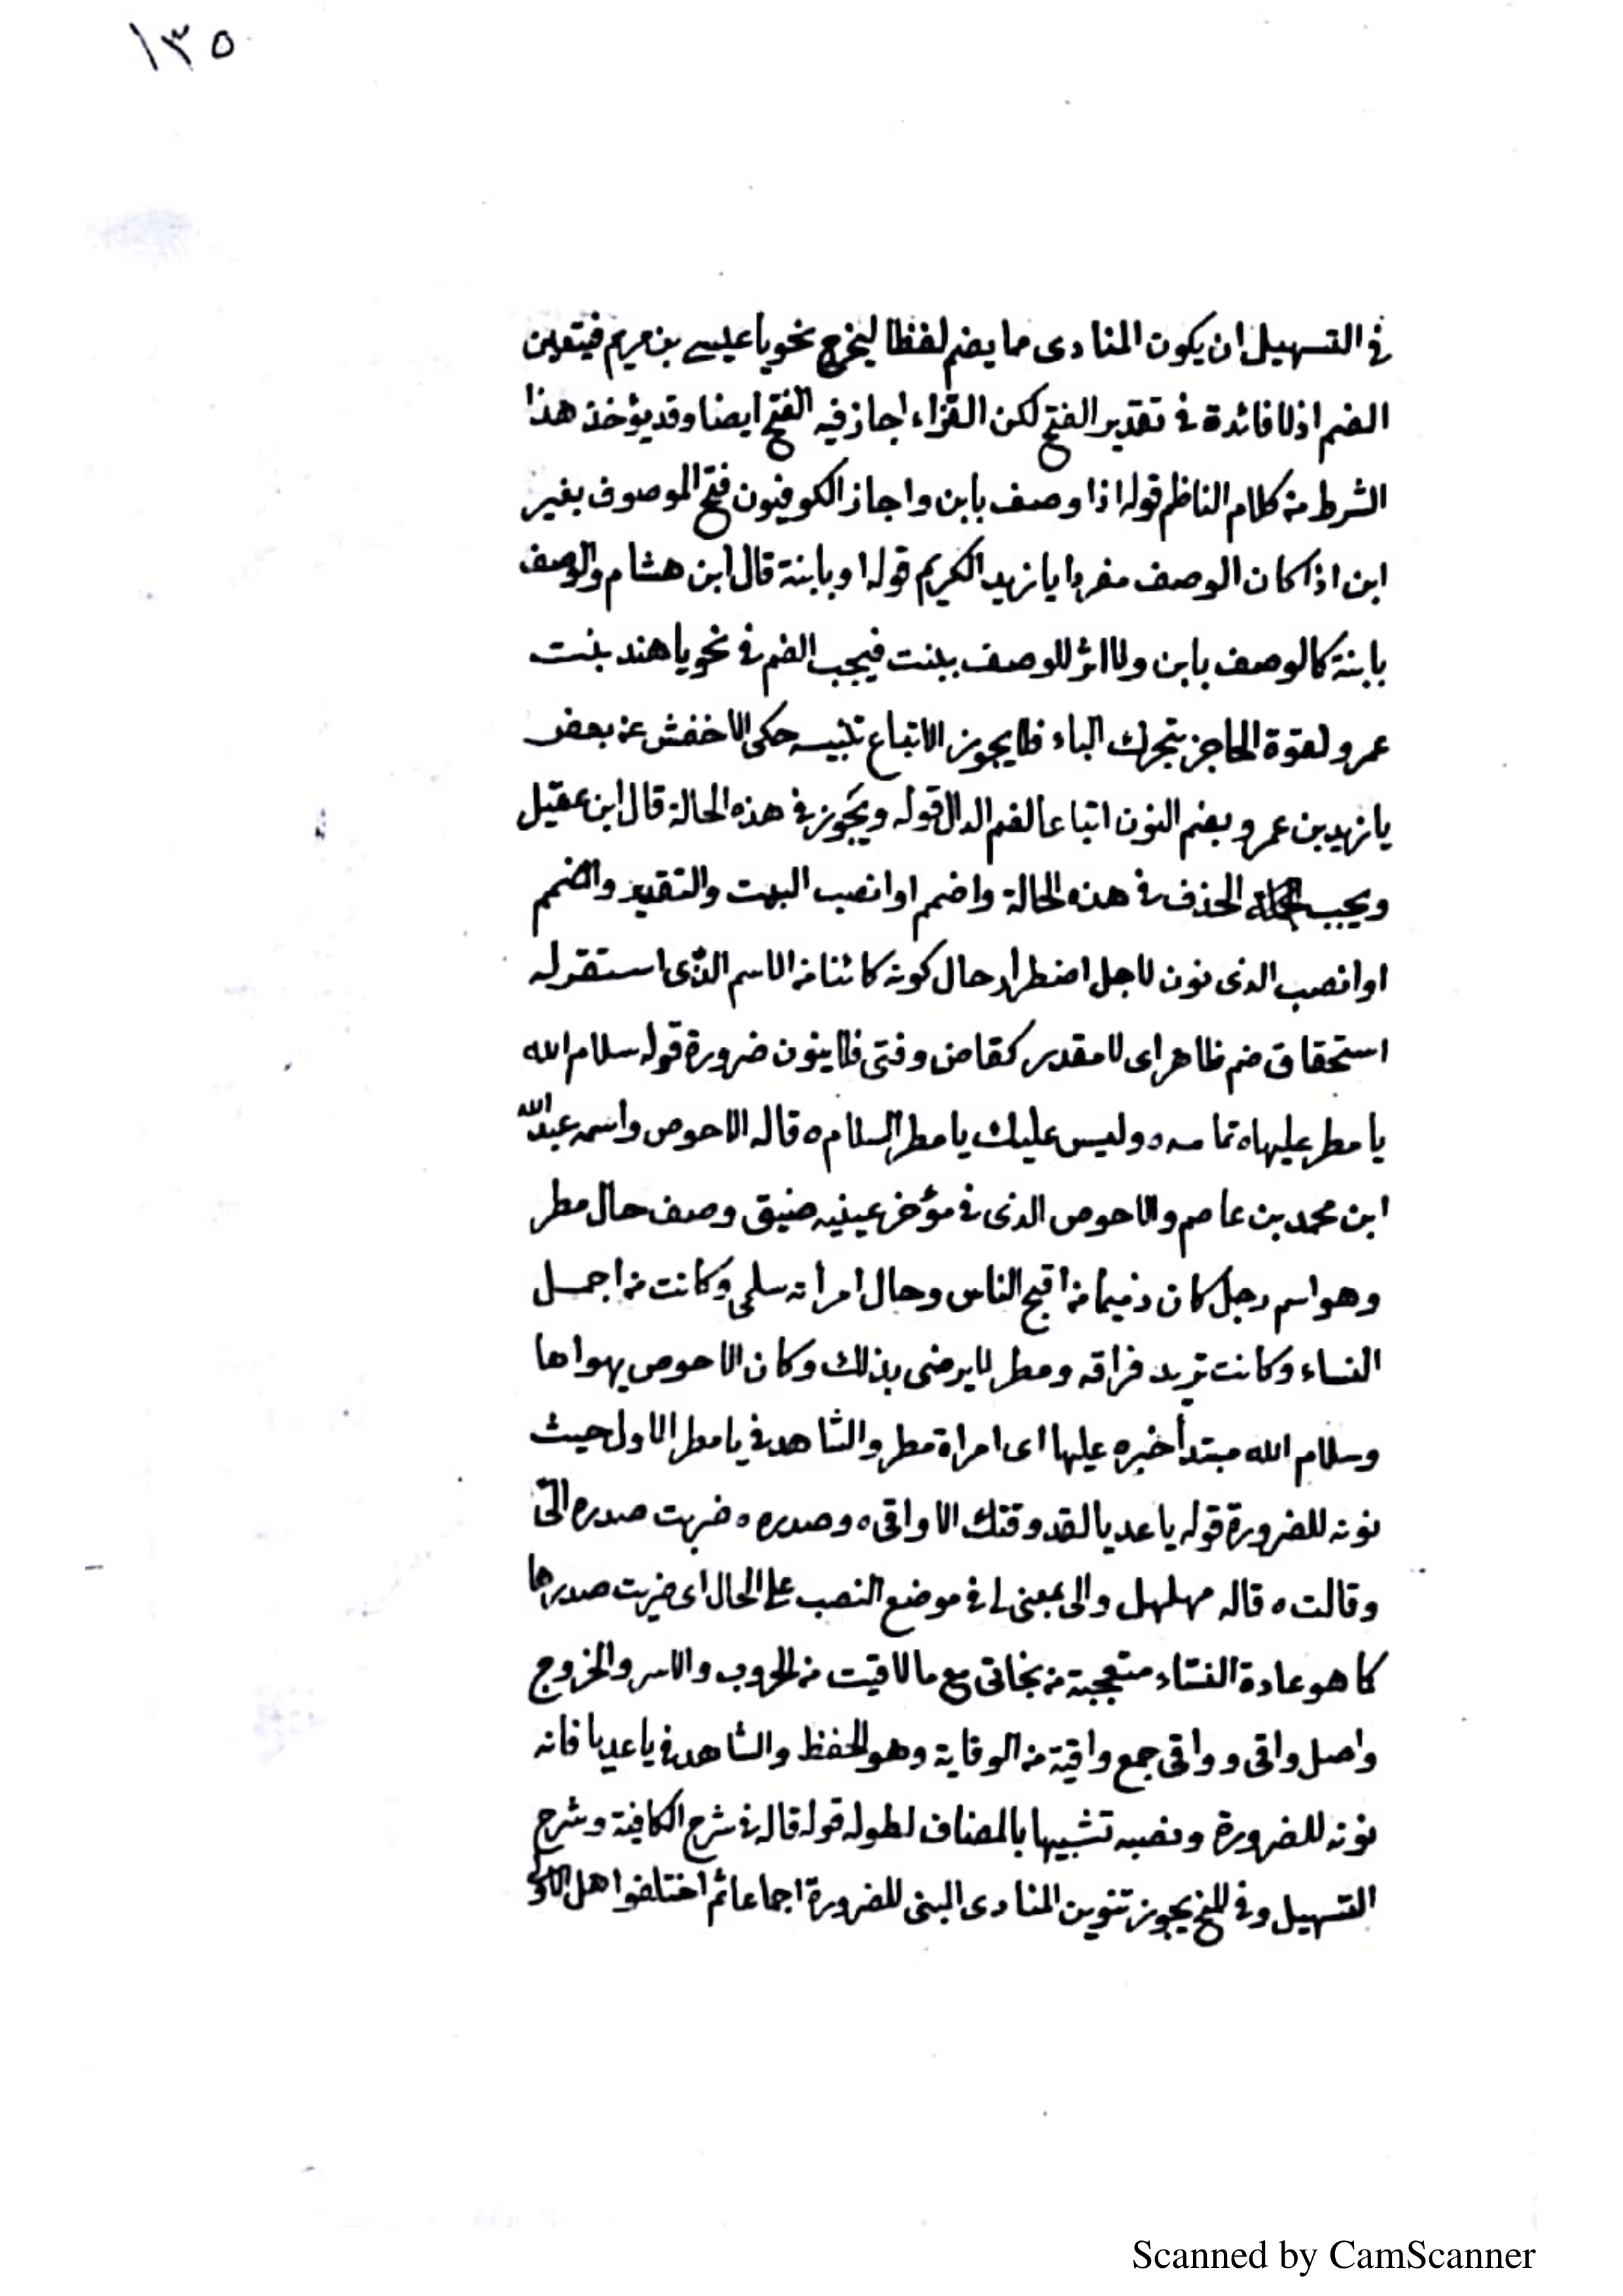 ١٣٥
في التسهيل ان يكون المنادى مما يضم لفظا ليخرج نحو يا عيسى بن مريم فيتعين
الضم اذ لا فائدة في تقدير الفتح لكن الفراء اجاز فيه الفتح ايضا وقد يؤخذ هذا
الشرط من كلام الناظم قوله اذا وصف بابن واجاز الكوفيون فتح الموصوف بغير
ابن اذا كان الوصف مفردا يا زيد الكريم قوله او بابنة قال ابن هشام والوصف
بابنة كالوصف بابن ولا اثر للوصف ببنت فيجب الضم في نحو يا هند بنت
عمرو لقوة الحاجز بتحرك الباء فلا يجوز الاتباع تنبيه حكى الاخفش عن بعض
يا زيد بن عمرو بضم النون اتباعا لضم الدال قوله ويجوز في هذه الحالة قال ابن عقيل
ويجب الحذف في هذه الحالة واضمم او انصب البيت والتقدير واضمم
او انصب الذي نون لاجل اضطرار حال كونه كائنا من الاسم الذي استقر له
استحقاق ضم ظاهر اى لا مقدر كقاض وفتى فلا ينون ضرورة قوله سلام الله
يا مطر عليها ه تمامه ه وليس عليك يا مطر السلام ه قاله الاحوص واسمه عبد الله
ابن محمد بن عاصم والاحوص الذي في مؤخر عينيه ضيق وصف حال مطر
وهو اسم رجل كان دميما من اقبح الناس وحال امرأته سلمى وكانت من اجمل
النساء وكانت تريد فراقه ومطر لا يرضى بذلك وكان الاحوص يهواها
وسلام الله مبتدأ خبره عليها اى امراة مطر والشاهد في يا مطر الاول حيث
نونه للضرورة قوله يا عديا لقد وقتك الاواقي ه وصدره ه ضربت صدره الى
وقالت ه قاله مهلهل والى بمعنى لي في موضع النصب على الحال اى ضربت صدرها
كما هو عادة النساء متعجبة من نجاتى مع ما لاقيت من الحروب والاسر والخروج
واصل واقى وواقى جمع واقية من الوقاية وهو الحفظ والشاهد في يا عديا فانه
نونه للضرورة ونصبه تشبيها بالمضاف لطوله قوله قال في شرح الكافية وشرح
التسهيل وفي يجوز تنوين المنادى المبنى للضرورة اجماعا ثم اختلفوا هل الاولى
Scanned by CamScanner